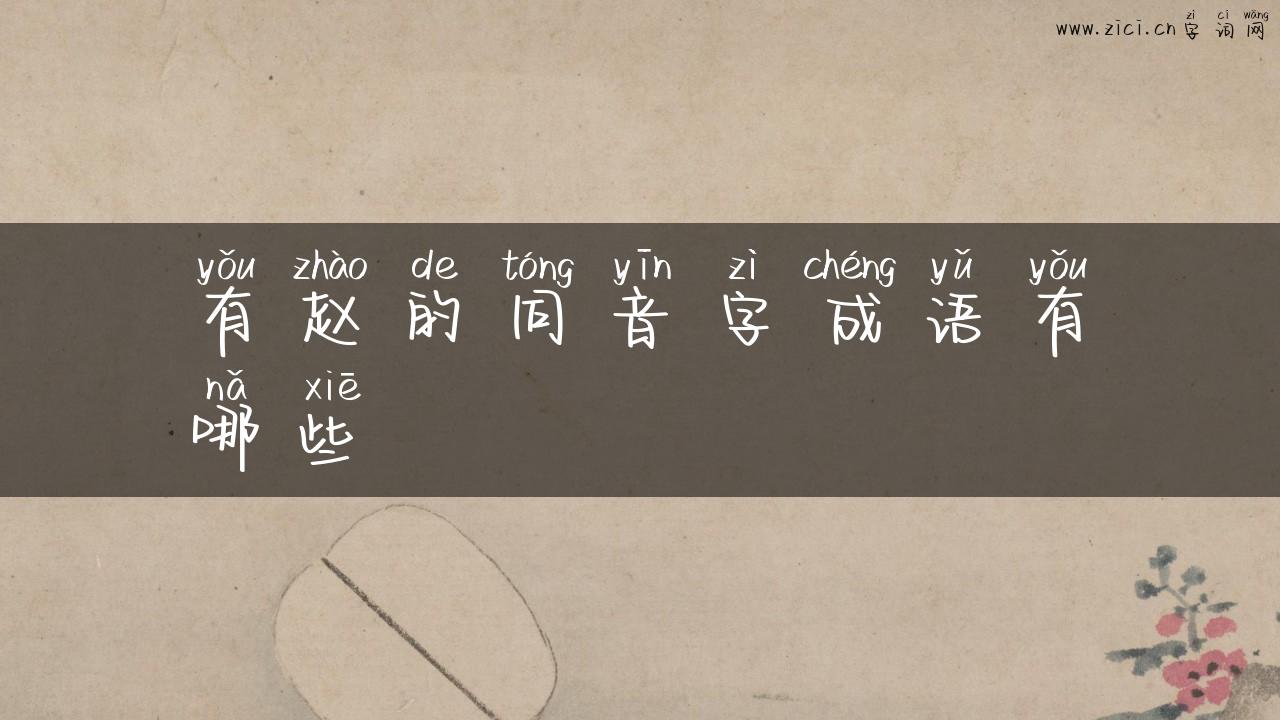 zì cí wǎng
www.zici.cn 字词网
yǒu zhào de tóng yīn zì chéng yǔ yǒu
有赵的同音字成语有
nǎ xiē
哪些